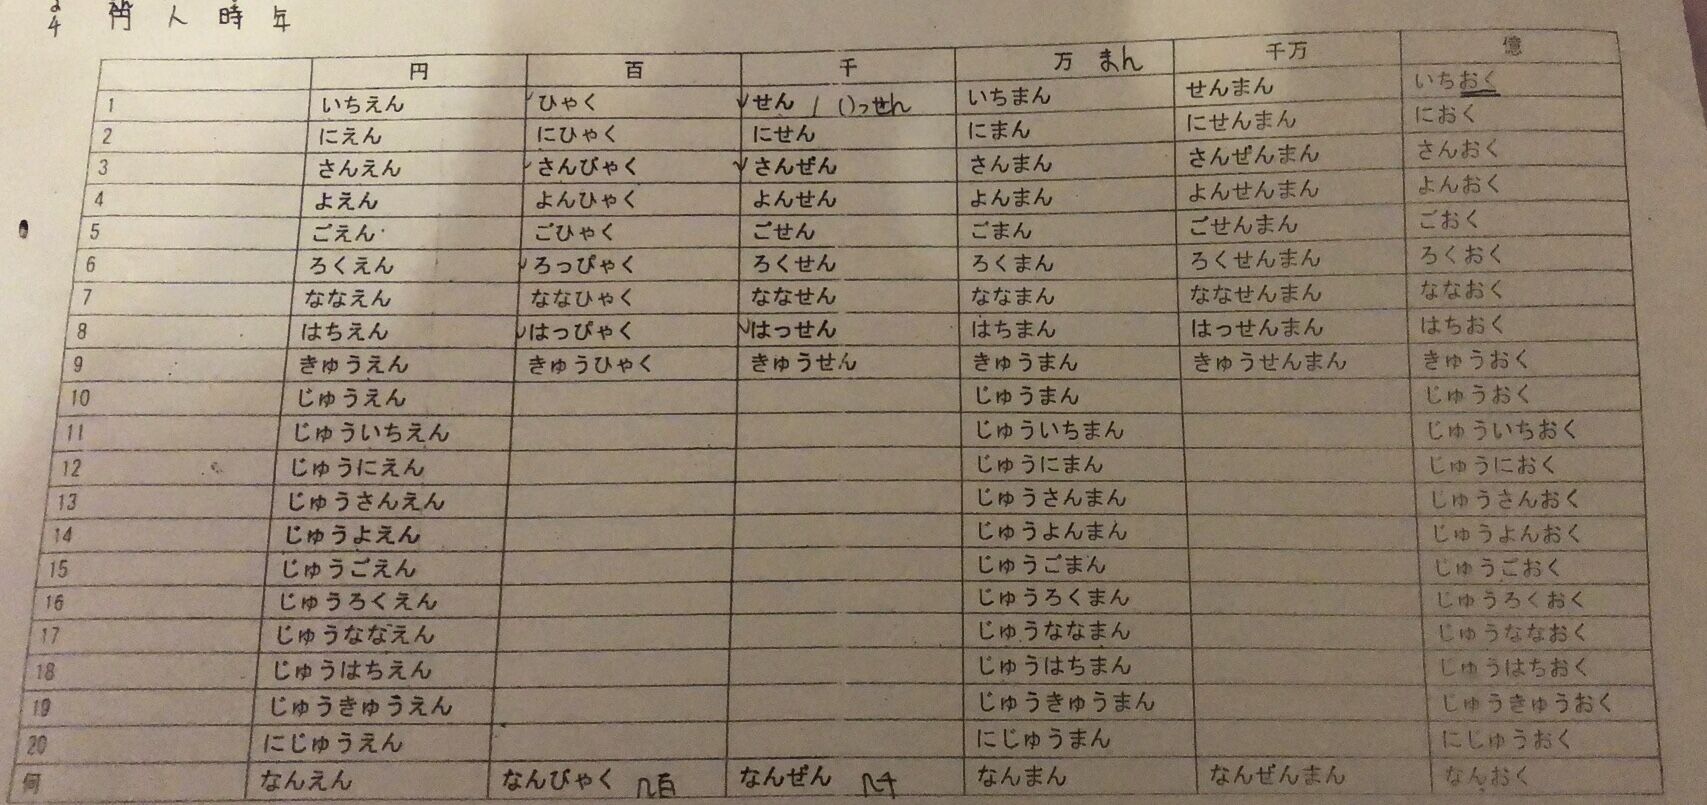 4 円 人 時 年
円 百 千 万 まん 千万 億
1 いちえん ひゃく せん / いっせん いちまん せんまん いちおく
2 にえん にひゃく にせん にまん にせんまん におく
3 さんえん さんびゃく さんぜん さんまん さんぜんまん さんおく
4 よえん よんひゃく よんせん よんまん よんせんまん よんおく
5 ごえん ごひゃく ごせん ごまん ごせんまん ごおく
6 ろくえん ろっぴゃく ろくせん ろくまん ろくせんまん ろくおく
7 ななえん ななひゃく ななせん ななまん ななせんまん ななおく
8 はちえん はっぴゃく はっせん はちまん はっせんまん はちおく
9 きゅうえん きゅうひゃく きゅうせん きゅうまん きゅうせんまん きゅうおく
10 じゅうえん じゅうまん じゅうおく
11 じゅういちえん じゅういちまん じゅういちおく
12 じゅうにえん じゅうにまん じゅうにおく
13 じゅうさんえん じゅうさんまん じゅうさんおく
14 じゅうよえん じゅうよんまん じゅうよんおく
15 じゅうごえん じゅうごまん じゅうごおく
16 じゅうろくえん じゅうろくまん じゅうろくおく
17 じゅうななえん じゅうななまん じゅうななおく
18 じゅうはちえん じゅうはちまん じゅうはちおく
19 じゅうきゅうえん じゅうきゅうまん じゅうきゅうおく
20 にじゅうえん にじゅうまん にじゅうおく
何 なんえん なんびゃく 几百 なんぜん 几千 なんまん なんぜんまん なんおく